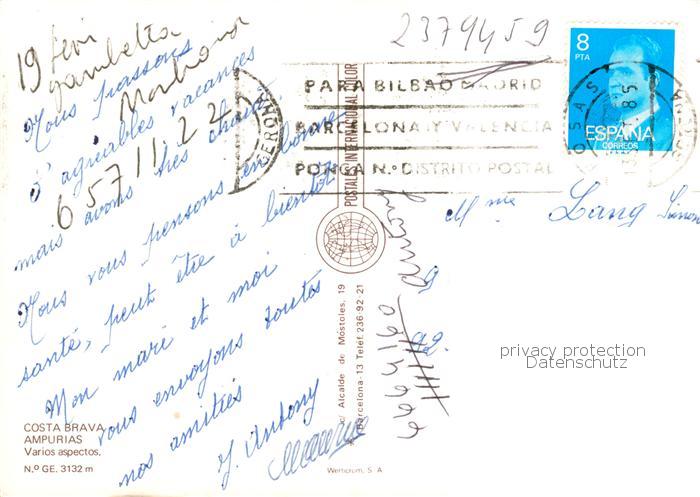 19 févri
gambetta
2379459
Nous passons
d'agréables vacances
mais avons très chaud.
65711122
Nous vous pensons en bonne
santé, peut être à bientôt
Mon mari et moi
vous envoyons toutes
nos amitiés
J. Antony
Maurice
COSTA BRAVA
AMPURIAS
Varios aspectos.
N.º GE. 3132 m
POSTAL INTERNACIONAL COLOR
c/ Alcalde de Móstoles, 19
Barcelona-13 Teléf. 236-92 21
Werticrom, S. A
PARA BILBAO MADRID
BARCELONA Y VALENCIA
PONGA N.º DISTRITO POSTAL
GERONA
ROSAS
8
PTA
ESPAÑA
CORREOS
Mme Lang Simon
Antony
92
privacy protection
Datenschutz